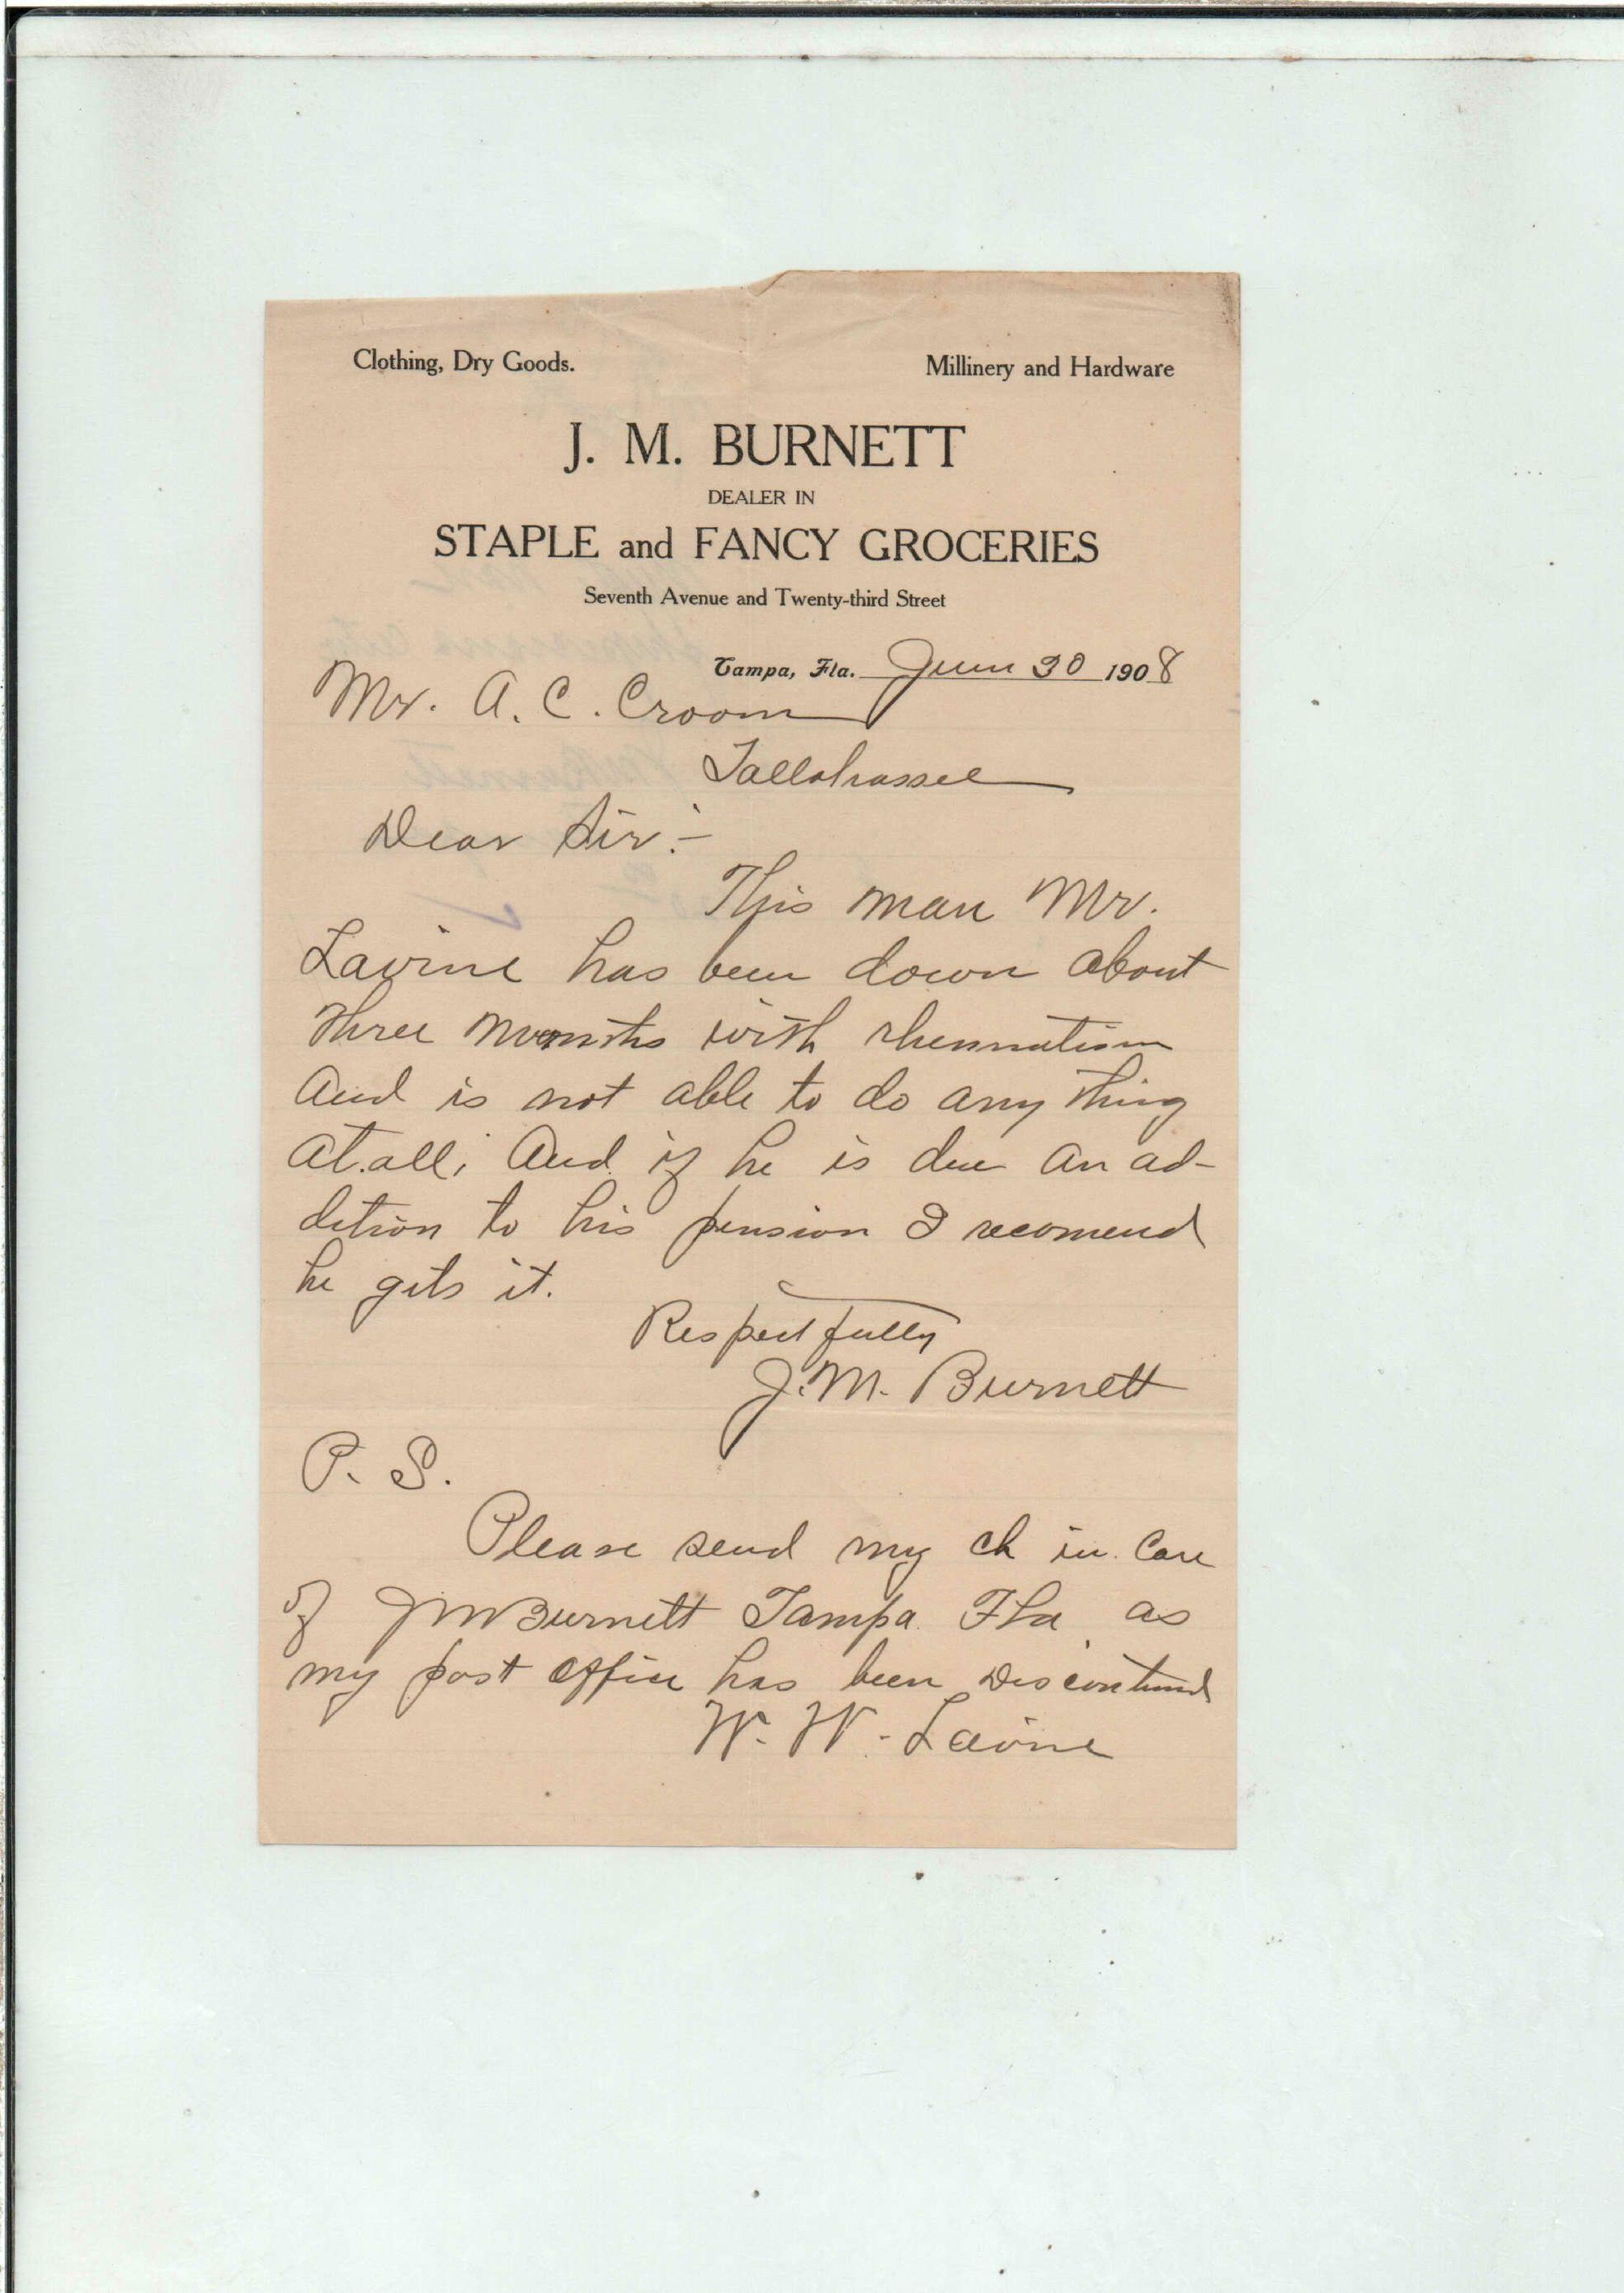 Clothing, Dry Goods. Millinery and Hardware
J. M. BURNETT
DEALER IN
STAPLE and FANCY GROCERIES
Seventh Avenue and Twenty-third Street
Tampa, Fla. June 30 1908
Mr. A. C. Croom
Tallahassee
Dear Sir:-
This man Mr.
Lavine has been down about
three months with rheumatism
And is not able to do any thing
at all, And if he is due an ad-
dition to his pension I recomend
he gets it.
Respectfully
J. M. Burnett
P. S.
Please send my ch in care
of J M Burnett Tampa Fla as
my post office has been Discontinued
W. W. Lavine